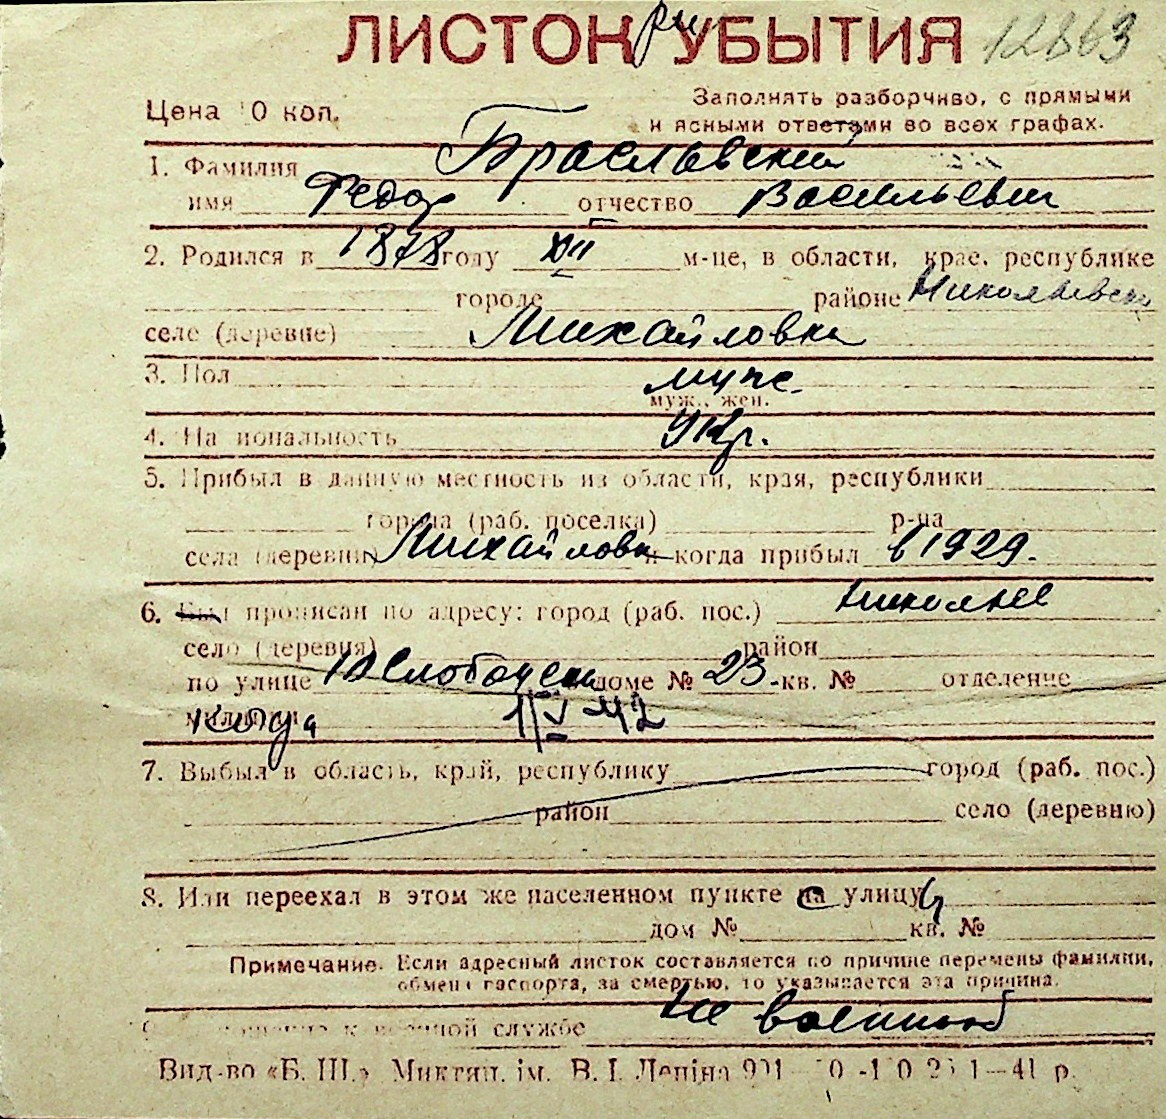 ЛИСТОК при УБЫТИЯ 12863
Цена 10 коп. Заполнять разборчиво, с прямыми
и ясными ответами во всех графах.
1. Фамилия Браславский
имя Федор отчество Васильевич
2. Родился в 1878 году XII м-це, в области, крае, республике
городе районе Николаевск
селе (деревне) Михайловка
3. Пол муж.
муж., жен.
4. Национальность Укр.
5. Прибыл в данную местность из области, края, республики
города (раб. поселка) р-на
села (деревни) Михайловки когда прибыл в 1929.
6. Был прописан по адресу: город (раб. пос.) Николаев
село (деревня) район
по улице 10 Слободская доме № 23. кв. № отделение
милиции когда 1/V 42
7. Выбыл в область, край, республику город (раб. пос.)
район село (деревню)
8. Или переехал в этом же населенном пункте на с улицу
дом № кв. №
Примечание. Если адресный листок составляется по причине перемены фамилии,
обмена паспорта, за смертью, то указывается эта причина.
к военной службе не военнооб
Вид-во «Б. Ш.» Миктип. ім. В. І. Леніна 41 р.